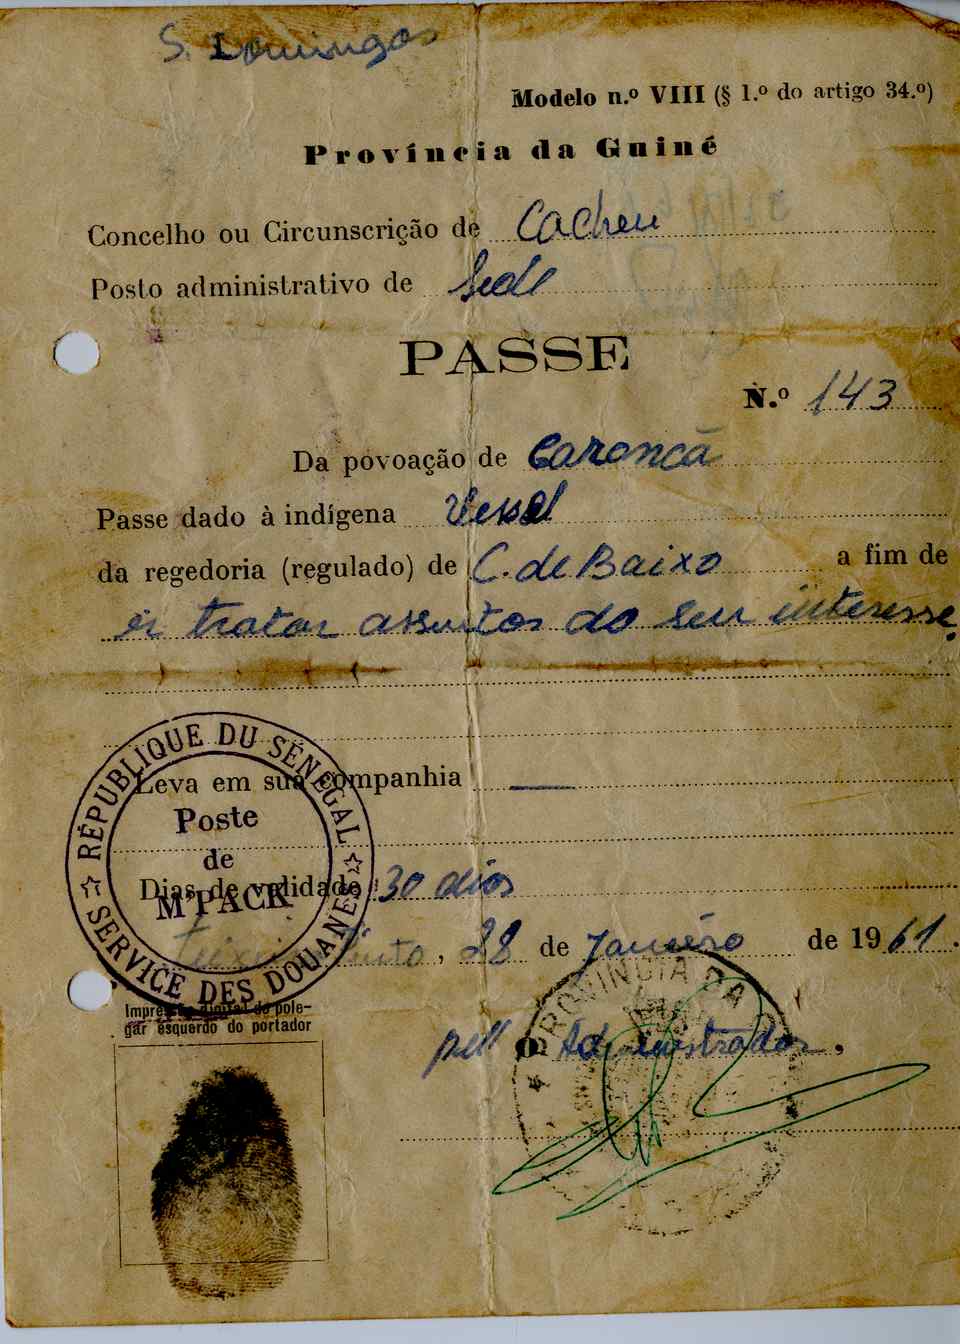 S. Domingos
Modelo n.º VIII (§ 1.º do artigo 34.º)
Província da Guiné
Concelho ou Circunscrição de Cacheu
Posto administrativo de Sede
PASSE
N.º 143
Da povoação de Caroncã
Passe dado à indígena
da regedoria (regulado) de C. de Baixo a fim de
ir tratar assuntos do seu interesse.
Leva em sua companhia —
Dias de validade 30 dias
Teixeira Pinto, 28 de Janeiro de 1961.
RÉPUBLIQUE DU SÉNÉGAL
Poste
de
M'PACK
SERVICE DES DOUANES
Impressão digital do pole-
gar esquerdo do portador
O Administrador,
PROVINCIA DA